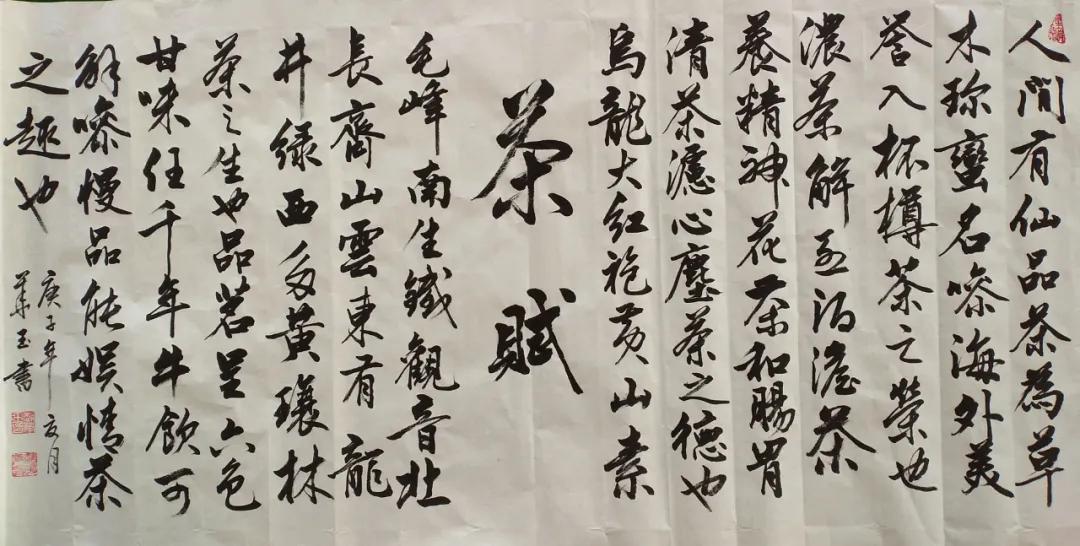 人間有仙品茶為草
木珍蠻名噪海外美
譽入杯樽茶之榮也
濃茶解烈酒澹茶
養精神花茶和腸胃
清茶濾心塵茶之德也
烏龍大紅袍黃山素
茶賦
毛峰南生鐵觀音北
長齊山雲東有龍
井綠西多黃瓖林
茶之生也品茗呈六色
甘味任千年牛飲可
解噪慢品能娛情茶
之趣也
庚子年夏月
華玉書